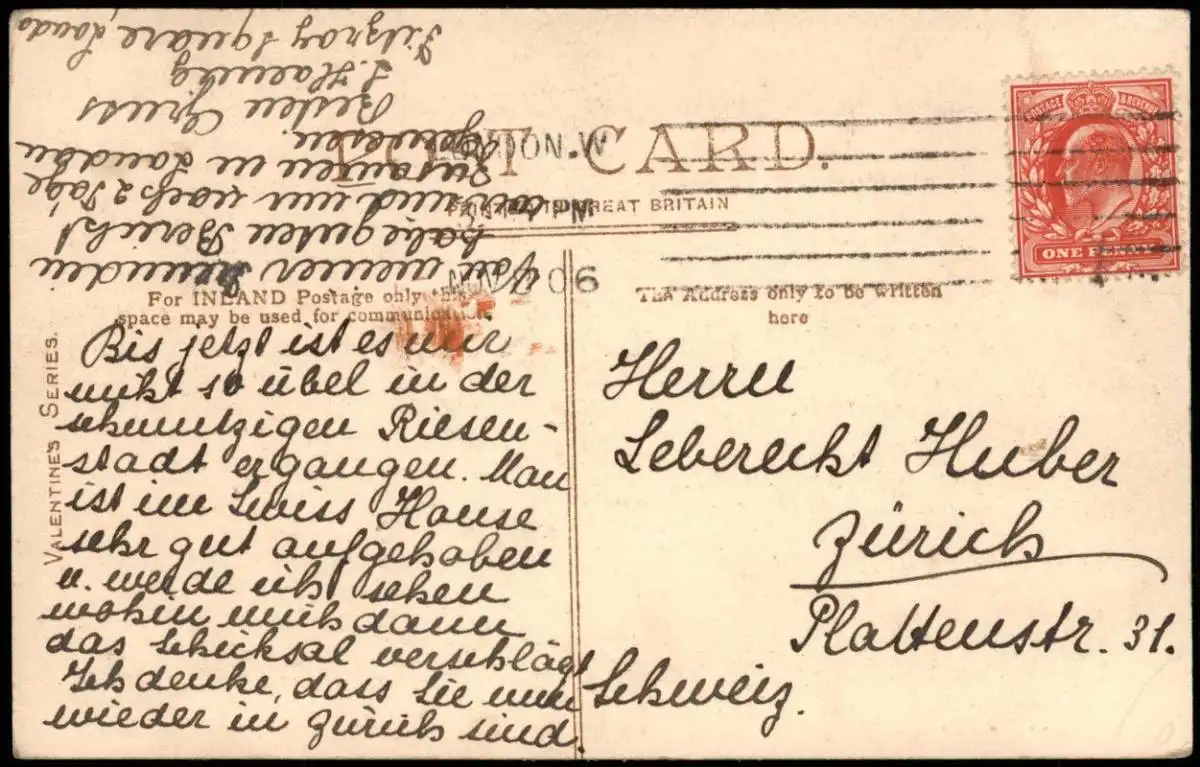 POST CARD.
PRINTED IN GREAT BRITAIN
LONDON. W
PM
06
POSTAGE REVENUE
ONE PENNY
For INLAND Postage only this
space may be used for communication.
The Address only to be written
here
VALENTINES SERIES.
Bis jetzt ist es mir
nicht so übel in der
schmutzigen Riesen-
stadt ergangen. Man
ist im Swiss House
sehr gut aufgehoben
u. werde ich sehen
wohin mich dann
das Schicksal verschlägt
Ich denke, dass Sie nun
wieder in Zürich sind.
Von meiner Freundin
habe guten Bericht
wir sind nur noch 2 Tage
zusammen in London
gewesen.
Besten Gruss
Fitzroy Square, London
Herrn
Leberecht Huber
Zürich
Plattenstr. 31.
Schweiz.